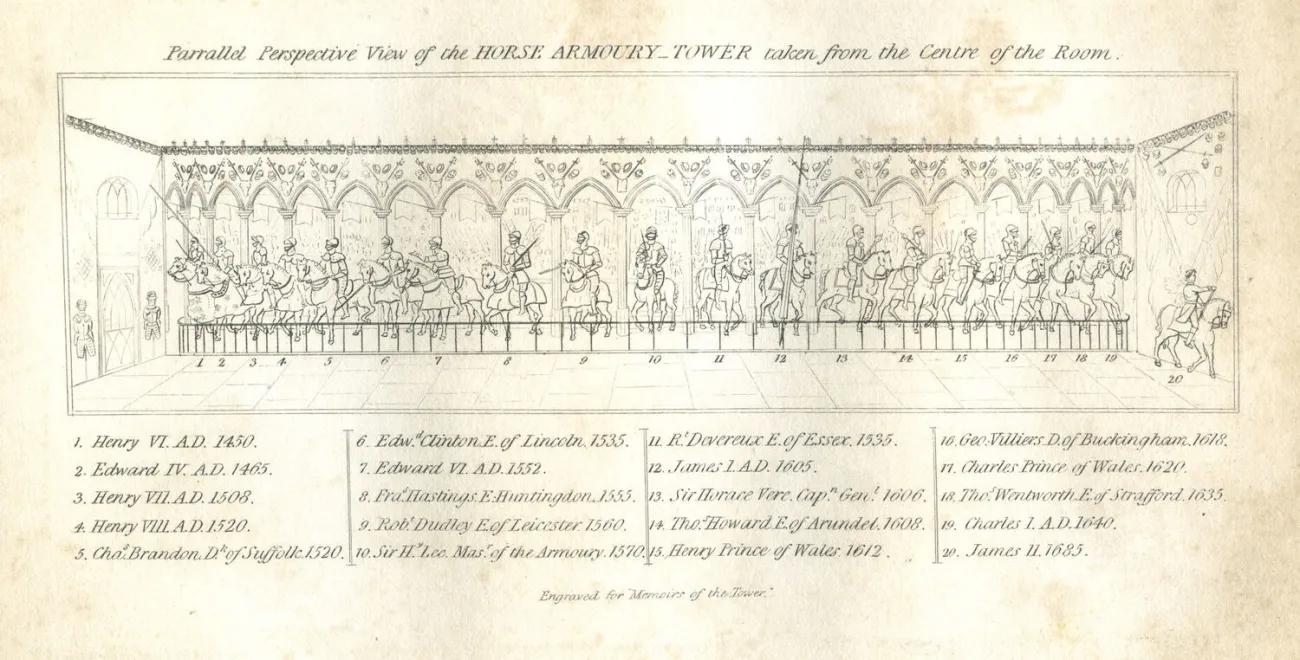 Parrallel Perspective View of the HORSE ARMOURY_TOWER taken from the Centre of the Room.
1 2 3 4 5 6 7 8 9 10 11 12 13 14 15 16 17 18 19
20
1. Henry VI. A.D. 1450.
2. Edward IV. A.D. 1465.
3. Henry VII. A.D. 1508.
4. Henry VIII. A.D. 1520.
5. Chas. Brandon. Dk. of Suffolk. 1520.
6. Edw.d Clinton. E. of Lincoln. 1535.
7. Edward VI. A.D. 1552.
8. Fras. Hastings. E. Huntingdon. 1555.
9. Robt. Dudley E. of Leicester 1560.
10. Sir H.y Lee. Mas.r of the Armoury. 1570.
11. R.t Devereux E. of Essex. 1535.
12. James I. A.D. 1605.
13. Sir Horace Vere. Cap.n Gen.l 1606.
14. Tho.s Howard. E. of Arundel. 1608.
15. Henry Prince of Wales. 1612.
16. Geo. Villiers. D. of Buckingham. 1618.
17. Charles Prince of Wales. 1620.
18. Tho.s Wentworth. E. of Strafford. 1635.
19. Charles I. A.D. 1640.
20. James II. 1685.
Engraved for "Memoirs of the Tower."